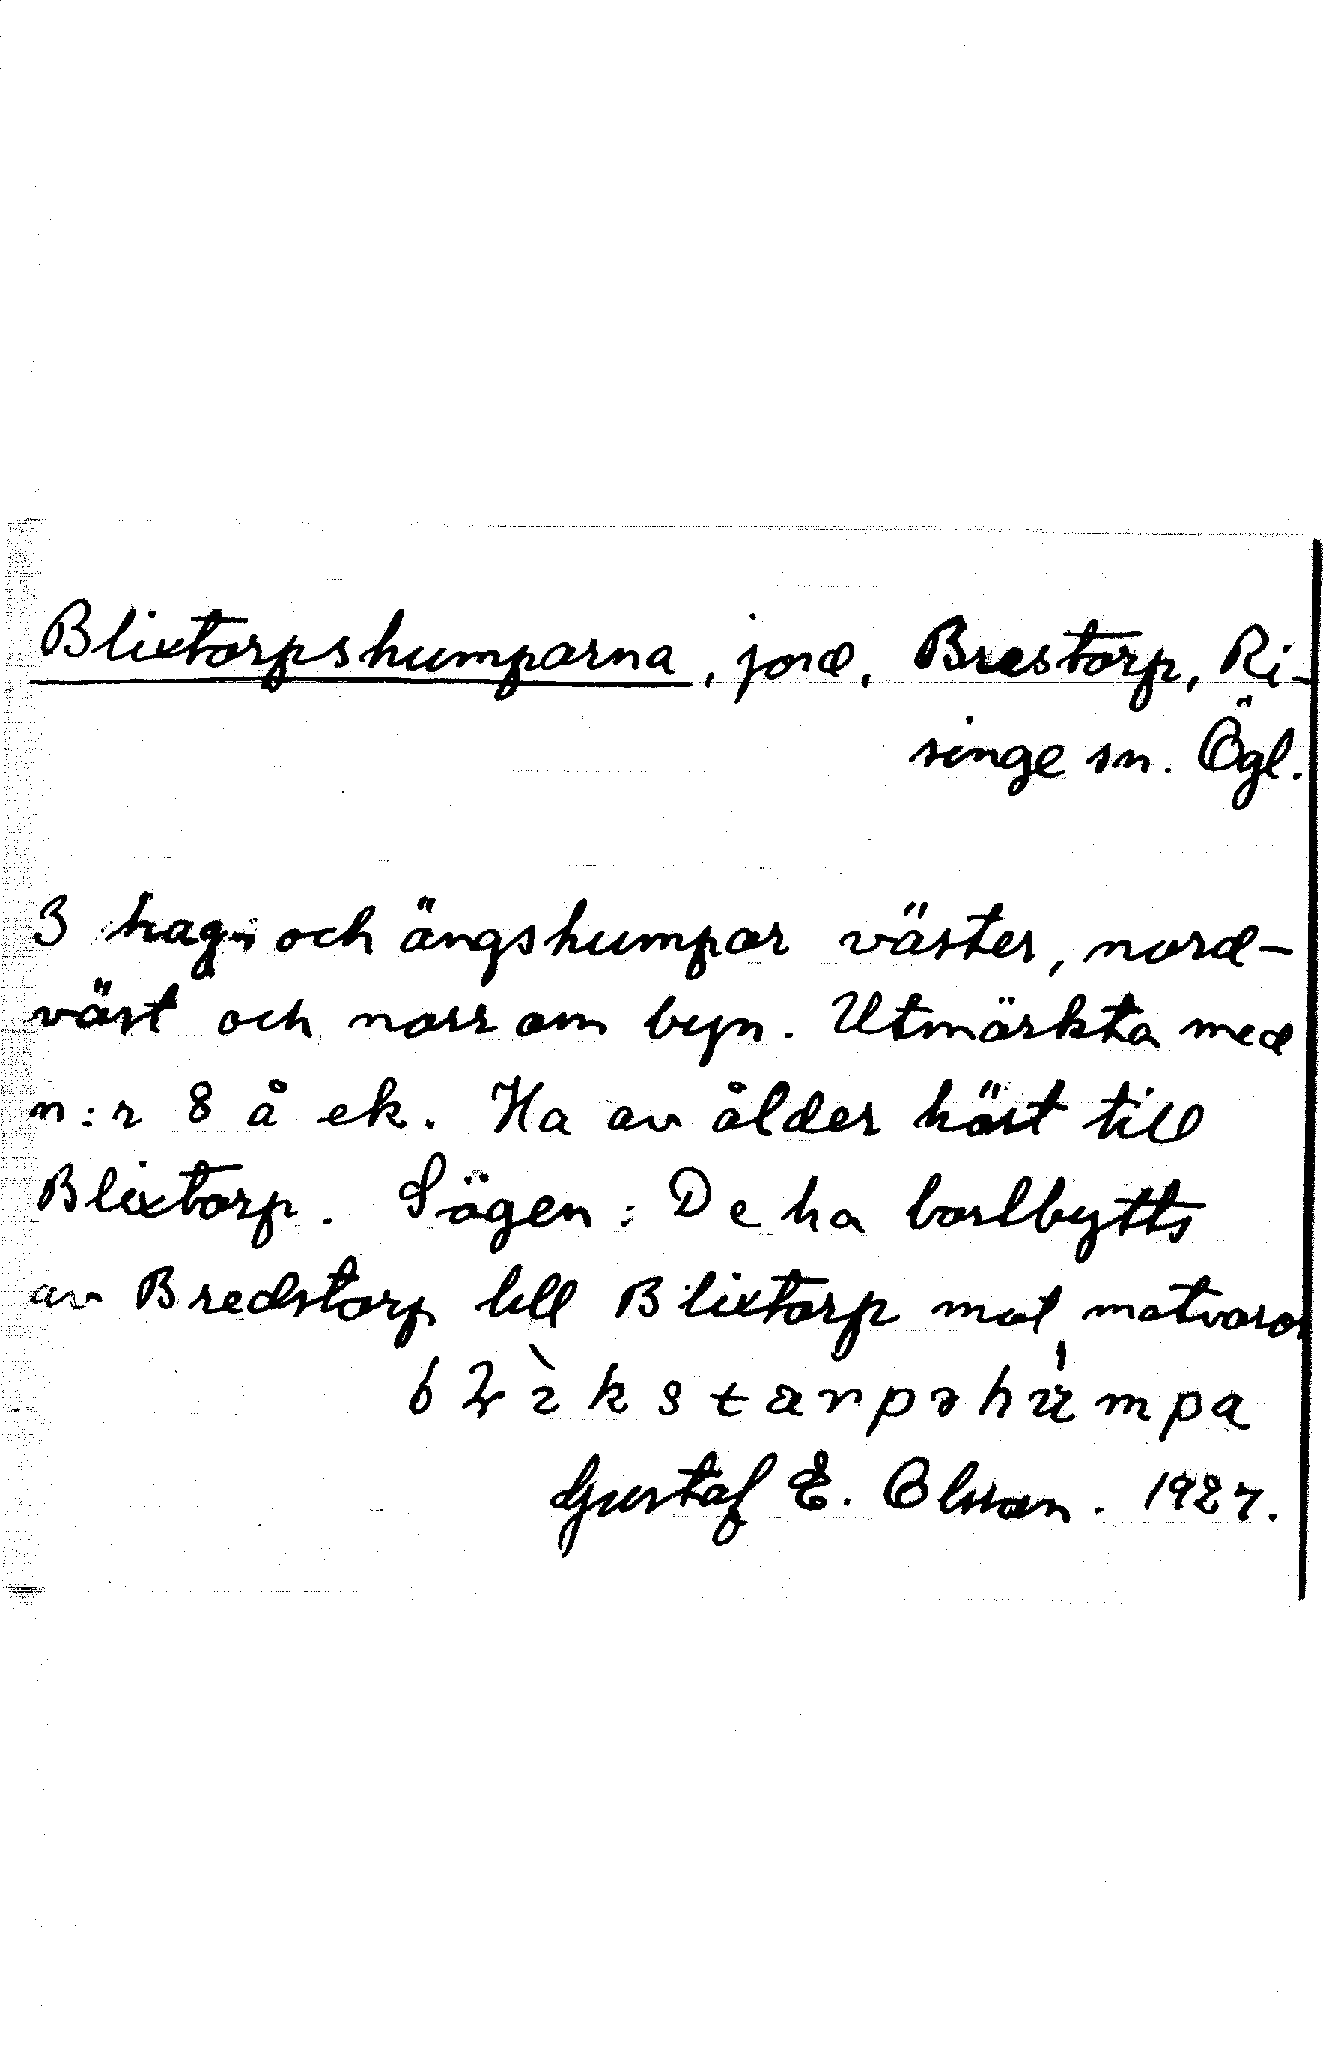 Blixtorpshumparna, jord, Brestorp, Ri-
singe sn. Ögl.
3 hag- och ängshumpar väster, nord-
väst och norr om byn. Utmärkta med
n:r 8 å ek. Ha av ålder hört till
Blixtorp. Sägen: De ha bortbytts
av Bredstorp till Blixtorp mot matvaror
blìkstarpəhumpa
Gustaf E. Olsson. 1927.